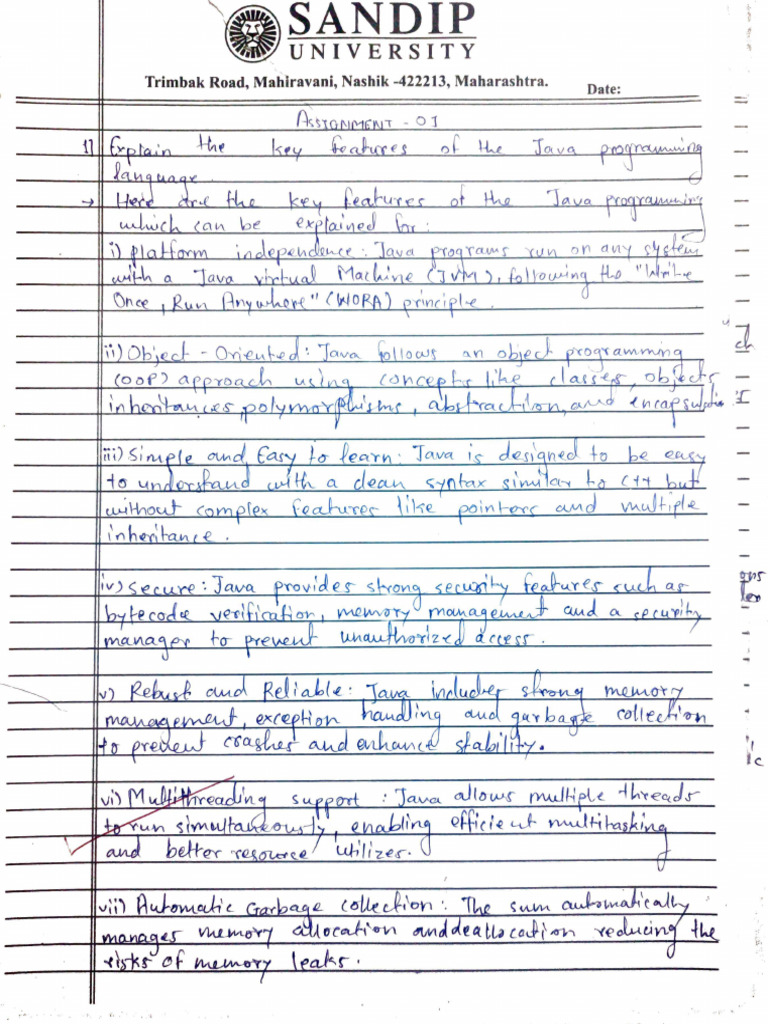 SANDIP
UNIVERSITY
Trimbak Road, Mahiravani, Nashik -422213, Maharashtra.
Date:
ASSIGNMENT - 01
1] Explain the key features of the Java programming
language.
→ Here are the key features of the Java programming
which can be explained for:
i) platform independence: Java programs run on any system
with a Java virtual Machine (JVM), following the "Write
Once, Run Anywhere" (WORA) principle.
ii) Object - Oriented: Java follows an object programming
(OOP) approach using concepts like classes, objects,
inheritances, polymorphisms, abstraction, and encapsulation.
iii) Simple and Easy to learn: Java is designed to be easy
to understand with a clean syntax similar to C++ but
without complex features like pointers and multiple
inheritance.
iv) Secure: Java provides strong security features such as
bytecode verification, memory management and a security
manager to prevent unauthorized access.
v) Robust and Reliable: Java includes strong memory
management, exception handling and garbage collection
to prevent crashes and enhance stability.
vi) Multithreading support: Java allows multiple threads
to run simultaneously, enabling efficient multitasking
and better resource utilizes.
vii) Automatic Garbage collection: The sum automatically
manages memory allocation and deallocation reducing the
risks of memory leaks.